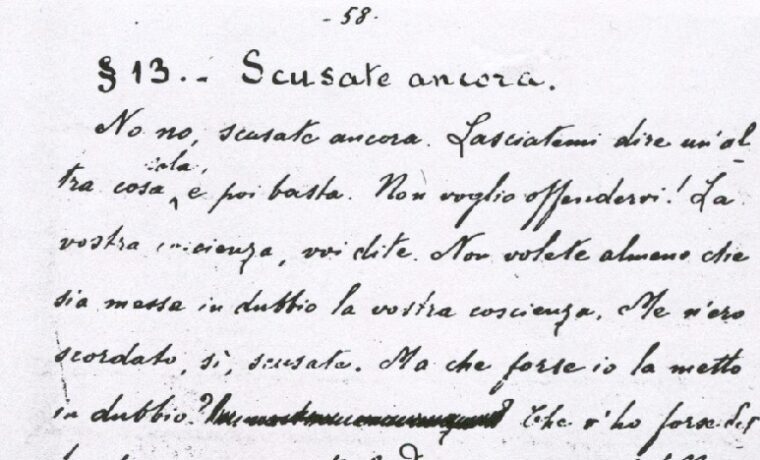 - 58 -
§ 13. - Scusate ancora.
No no, scusate ancora. Lasciatemi dire un'al
tra cosa, e poi basta. Non voglio offendervi! La
vostra coscienza, voi dite. Non volete almeno che
sia messa in dubbio la vostra coscienza. Me n'ero
scordato, sì, scusate. Ma che forse io la metto
in dubbio? Che v'ho forse det